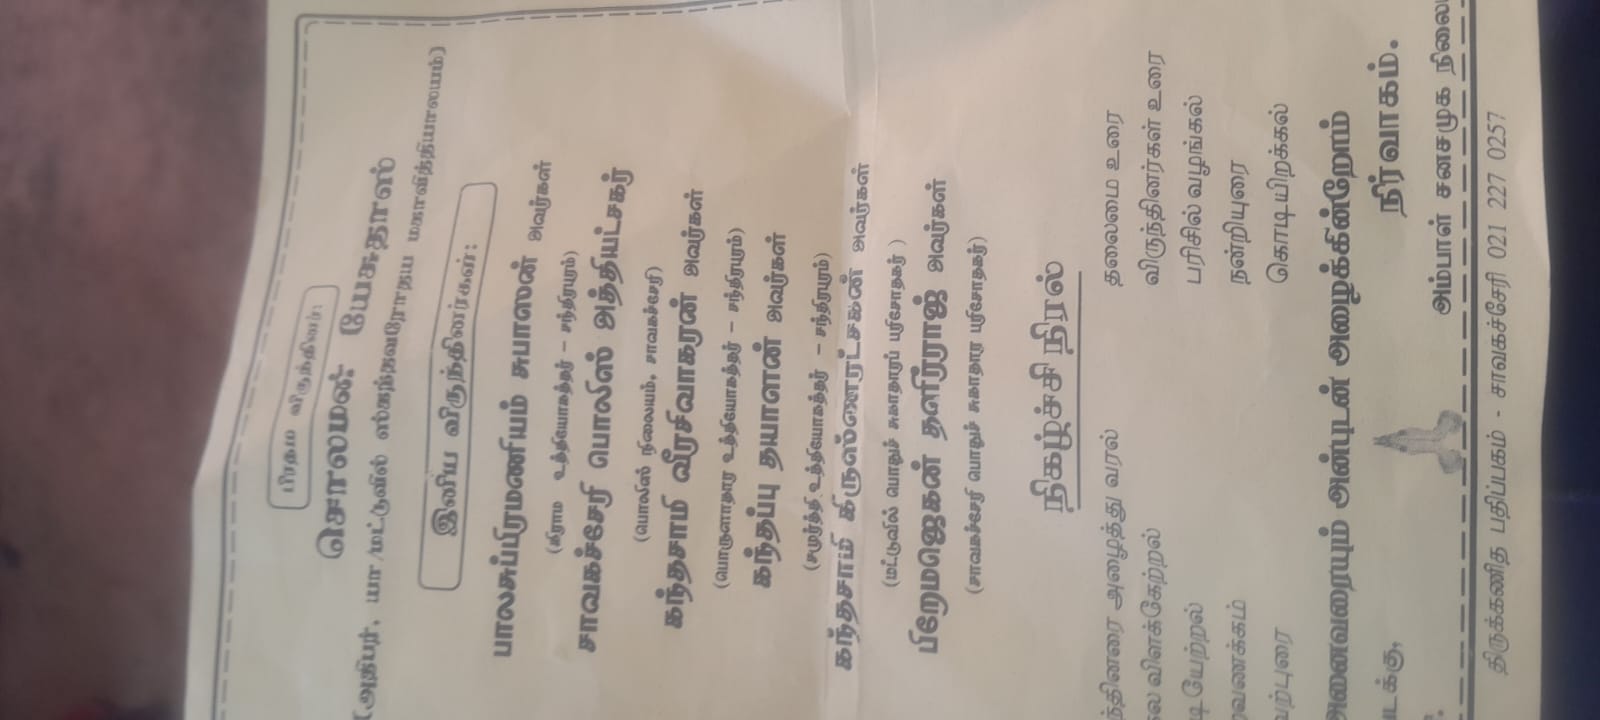 பிரதம விருந்தினர்:
சொலமன் யேசுதாஸ்
(அதிபர், யா/மட்டுவில் ஸ்கந்தவரோதய மகாவித்தியாலயம்)
இனிய விருந்தினர்கள்:
பாலசுப்பிரமணியம் சுபாஸன் அவர்கள்
(கிராம உத்தியோகத்தர் – சந்திரபுரம்)
சாவகச்சேரி பொலிஸ் அத்தியட்சகர்
(பொலிஸ் நிலையம், சாவகச்சேரி)
கந்தசாமி வீரசிவாகரன் அவர்கள்
(பொருளாதார உத்தியோகத்தர் – சந்திரபுரம்)
கந்தப்பு தயாளன் அவர்கள்
(சமுர்த்தி உத்தியோகத்தர் – சந்திரபுரம்)
கந்தசாமி அவர்கள்
(மட்டுவில் பொதுச் சுகாதாரப் பரிசோதகர் )
பிறேமஜெகன் தளிர்ராஜ் அவர்கள்
(சாவகச்சேரி பொதுச் சுகாதார பரிசோதகர்)
நிகழ்ச்சி நிரல்
அழைத்து வரல் தலைமை உரை
விருந்தினர்கள் உரை
பரிசில் வழங்கல்
நன்றியுரை
கொடியிறக்கல்
அனைவரையும் அன்புடன் அழைக்கின்றோம்
நிர்வாகம்.
அம்பாள் சனசமுக
திருக்கணித பதிப்பகம் - சாவகச்சேரி 021 227 0257